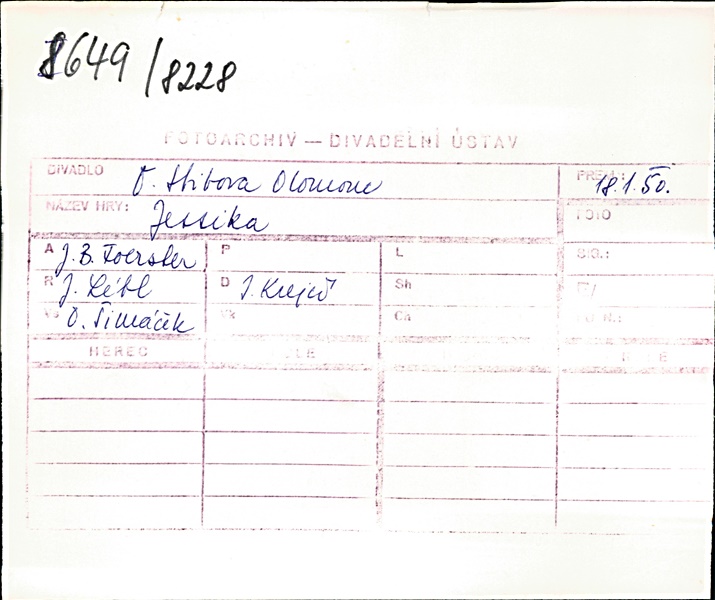 8649 / 8228
FOTOARCHIV — DIVADELNÍ ÚSTAV
DIVADLO O. Stibora Olomouc PREM.: 18.1.50.
NÁZEV HRY: Jessika FOTO
A J. B. Foerster P L SIG.:
R J. Lébl D I. Krejčí Sh
Vs O. Šimáček Ca
HEREC